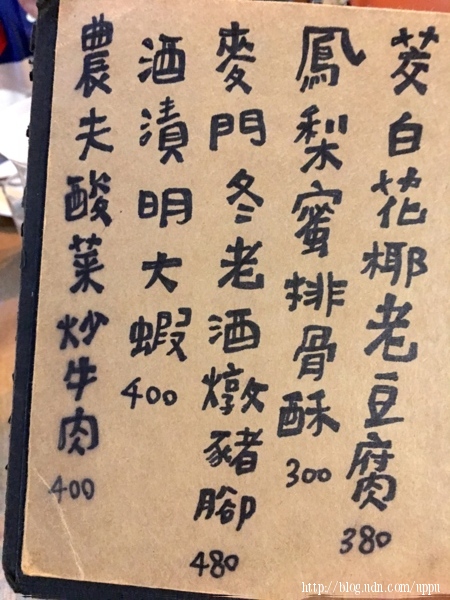 茭白花椰老豆腐 380
鳳梨蜜排骨酥 300
麥門冬老酒燉豬腳 480
酒漬明大蝦 400
農夫酸菜炒牛肉 400
http://blog.udn.com/uppu